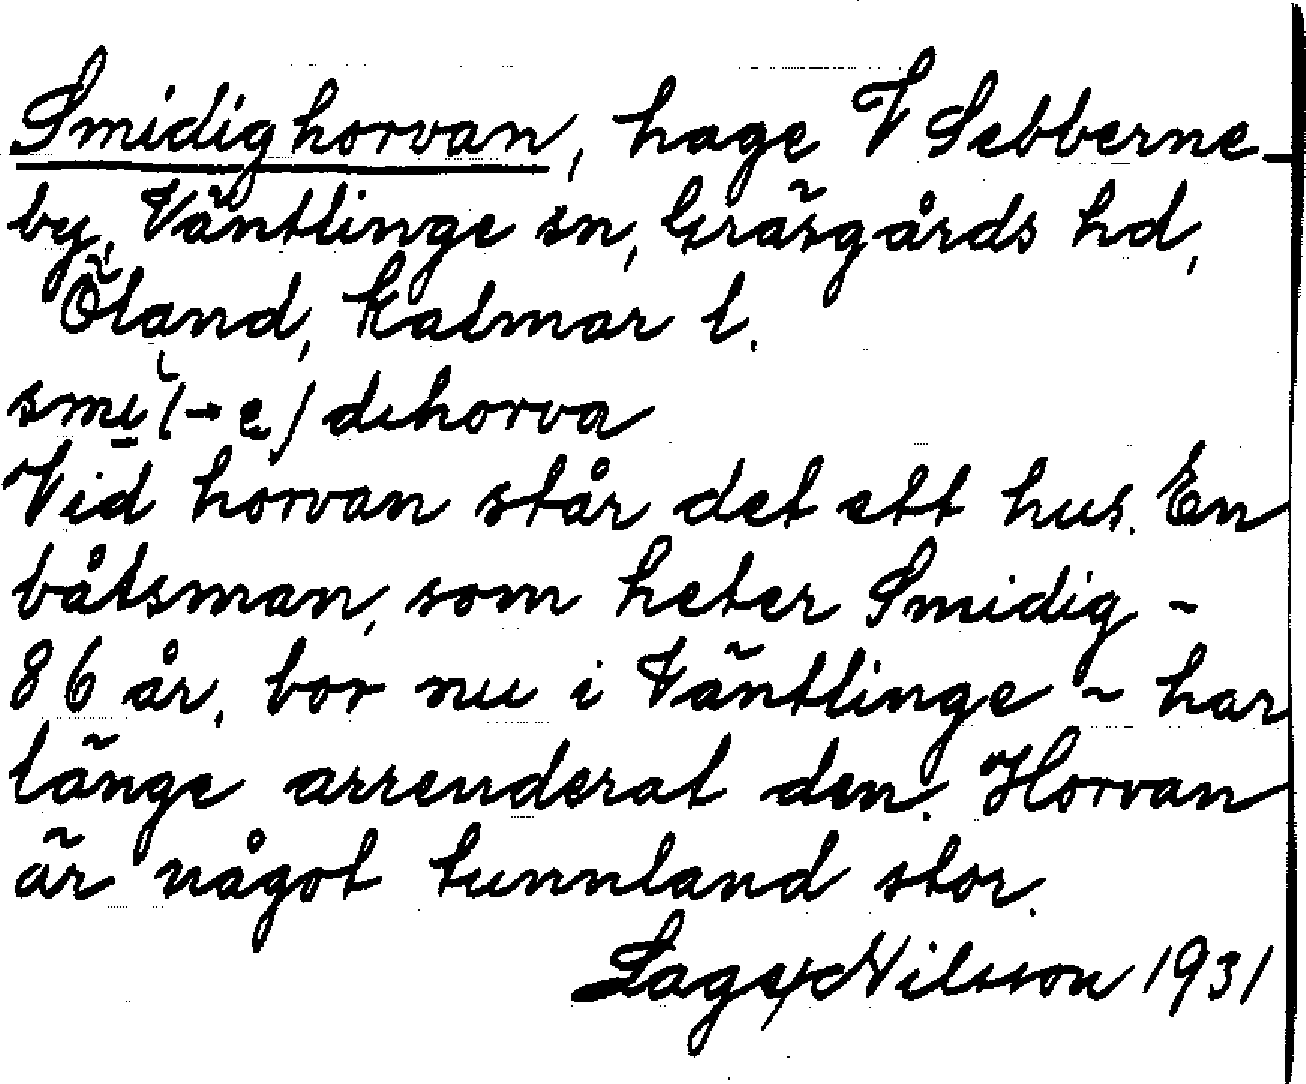 Smidighorvan, hage V Sebberne-
by, Väntlinge sn, Gräsgårds hd,
Öland, Kalmar l.
smi(-e)dihorva
Vid horvan står det ett hus. En
båtsman, som heter Smidig -
86 år, bor nu i Väntlinge - har
länge arrenderat den. Horvan
är något tunnland stor.
Lage Nilsson 1931